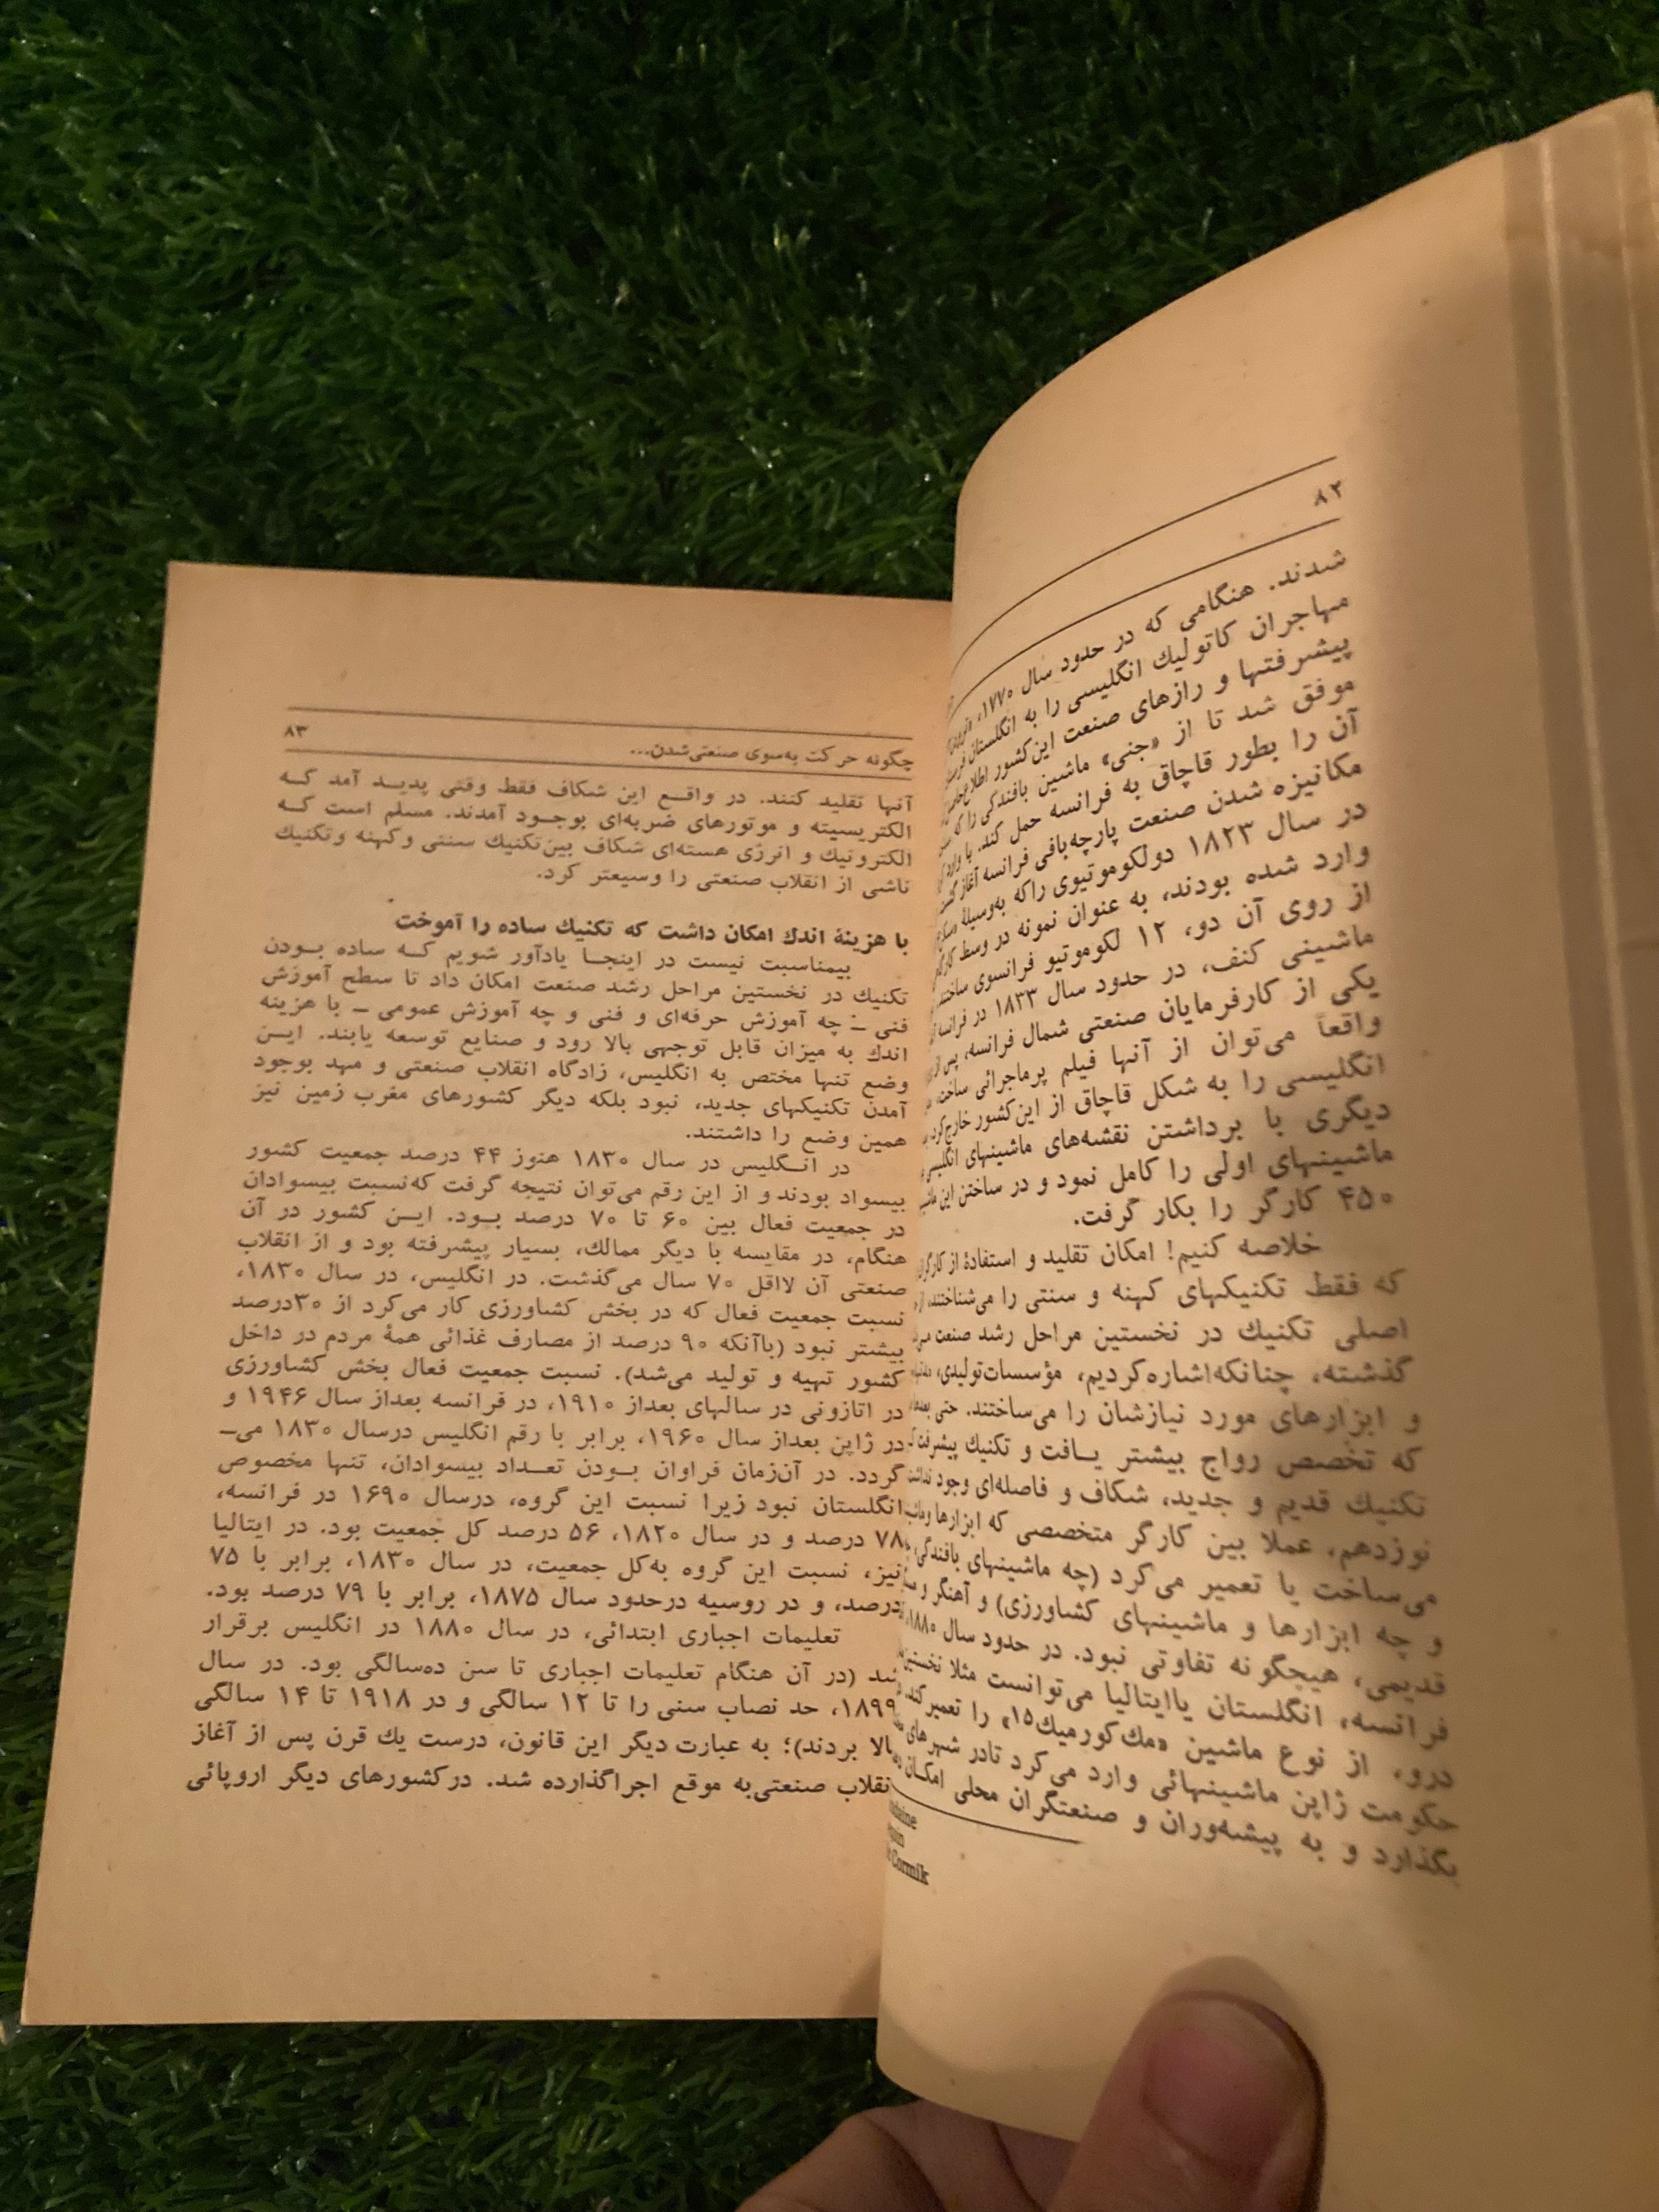 ۸۲
شدند. هنگامی که در حدود سال ۱۷۷۰،
مهاجران کاتولیك انگلیسی را به انگلستان
پیشرفتها و رازهای صنعت این‌کشور اطلاع
موفق شد تا از «جنی» ماشین بافندگی را که
آن را بطور قاچاق به فرانسه حمل کند. با وارد
مکانیزه شدن صنعت پارچه‌بافی فرانسه آغاز
در سال ۱۸۲۳ دولکوموتیوی راکه به‌وسیلهٔ
وارد شده بودند، به عنوان نمونه در وسط
از روی آن دو، ۱۲ لکوموتیو فرانسوی ساختند
ماشینی کنف، در حدود سال ۱۸۳۳ در فرانسه
یکی از کارفرمایان صنعتی شمال فرانسه، پس از
واقعاً می‌توان از آنها فیلم پرماجرائی ساخت،
انگلیسی را به شکل قاچاق از این‌کشور خارج‌کرد
دیگری با برداشتن نقشه‌های ماشینهای انگلیسی
ماشینهای اولی را کامل نمود و در ساختن این
۴۵۰ کارگر را بکار گرفت.
خلاصه کنیم! امکان تقلید و استفادهٔ از
که فقط تکنیکهای کهنه و سنتی را می‌شناختند،
اصلی تکنیك در نخستین مراحل رشد صنعت
گذشته، چنانکه‌اشاره‌کردیم، مؤسسات‌تولیدی،
و ابزارهای مورد نیازشان را می‌ساختند. حتی
که تخصص رواج بیشتر یـافت و تکنیك پیشرفت
تکنیك قدیم و جدید، شکاف و فاصله‌ای وجود
نوزدهم، عملا بین کارگر متخصصی که ابزارها
می‌ساخت یا تعمیر می‌کرد (چه ماشینهای بافندگی
و چه ابزارها و ماشینهای کشاورزی) و آهنگر
قدیمی، هیچگونه تفاوتی نبود. در حدود سال ۱۸۸۰،
فرانسه، انگلستان یاایتالیا می‌توانست مثلا نخستین
درو، از نوع ماشین «مك‌کورمیك۱۵» را تعمیر کند،
حکومت ژاپن ماشینهائی وارد می‌کرد تادر شهرهای
بگذارد و به پیشه‌وران و صنعتگران محلی امکـان
Cormik
چگونه حرکت به‌سوی صنعتی‌شدن... ۸۳
آنها تقلید کنند. در واقـع این شکاف فقط وقتی پدیـد آمد کـه
الکتریسیته و موتورهای ضربه‌ای بوجـود آمدند. مسلم است کـه
الکترونیك و انرژی هسته‌ای شکاف بین‌تکنیك سنتی وکهنه وتکنیك
ناشی از انقلاب صنعتی را وسیعتر کرد.
با هزینهٔ اندك امکان داشت که تکنیك ساده را آموخت
بیمناسبت نیست در اینجـا یادآور شویم کـه ساده بـودن
تکنیك در نخستین مراحل رشد صنعت امکان داد تا سطح آموزش
فنی ـ چه آموزش حرفه‌ای و فنی و چه آموزش عمومی ـ با هزینه
اندك به میزان قابل توجهی بالا رود و صنایع توسعه یابند. ایـن
وضع تنها مختص به انگلیس، زادگاه انقلاب صنعتی و مهد بوجود
آمدن تکنیکهای جدید، نبود بلکه دیگر کشورهای مغرب زمین نیز
همین وضع را داشتند.
در انـگلیس در سال ۱۸۳۰ هنوز ۴۴ درصد جمعیت کشور
بیسواد بودند و از این رقم می‌توان نتیجه گرفت که‌نسبت بیسوادان
در جمعیت فعال بین ۶۰ تا ۷۰ درصد بـود. ایـن کشور در آن
هنگام، در مقایسه با دیگر ممالك، بسیار پیشرفته بود و از انقلاب
صنعتی آن لااقل ۷۰ سال می‌گذشت. در انگلیس، در سال ۱۸۳۰،
نسبت جمعیت فعال که در بخش کشاورزی کار می‌کرد از ۳۰درصد
بیشتر نبود (باآنکه ۹۰ درصد از مصارف غذائی همهٔ مردم در داخل
کشور تهیه و تولید می‌شد). نسبت جمعیت فعال بخش کشاورزی
در اتازونی در سالهای بعداز ۱۹۱۰، در فرانسه بعداز سال ۱۹۴۶ و
در ژاپن بعداز سال ۱۹۶۰، برابر با رقم انگلیس درسال ۱۸۳۰ می‌ـ
گردد. در آن‌زمان فراوان بـودن تعـداد بیسوادان، تنها مخصوص
انگلستان نبود زیرا نسبت این گروه، درسال ۱۶۹۰ در فرانسه،
۷۸ درصد و در سال ۱۸۲۰، ۵۶ درصد کل جمعیت بود. در ایتالیا
نیز، نسبت این گروه به‌کل جمعیت، در سال ۱۸۳۰، برابر با ۷۵
درصد، و در روسیه درحدود سال ۱۸۷۵، برابر با ۷۹ درصد بود.
تعلیمات اجباری ابتدائی، در سال ۱۸۸۰ در انگلیس برقرار
شد (در آن هنگام تعلیمات اجباری تا سن ده‌سالگی بود. در سال
۱۸۹۹، حد نصاب سنی را تا ۱۲ سالگی و در ۱۹۱۸ تا ۱۴ سالگی
بالا بردند)؛ به عبارت دیگر این قانون، درست یك قرن پس از آغاز
نقلاب صنعتی‌به موقع اجراگذارده شد. درکشورهای دیگر اروپائی